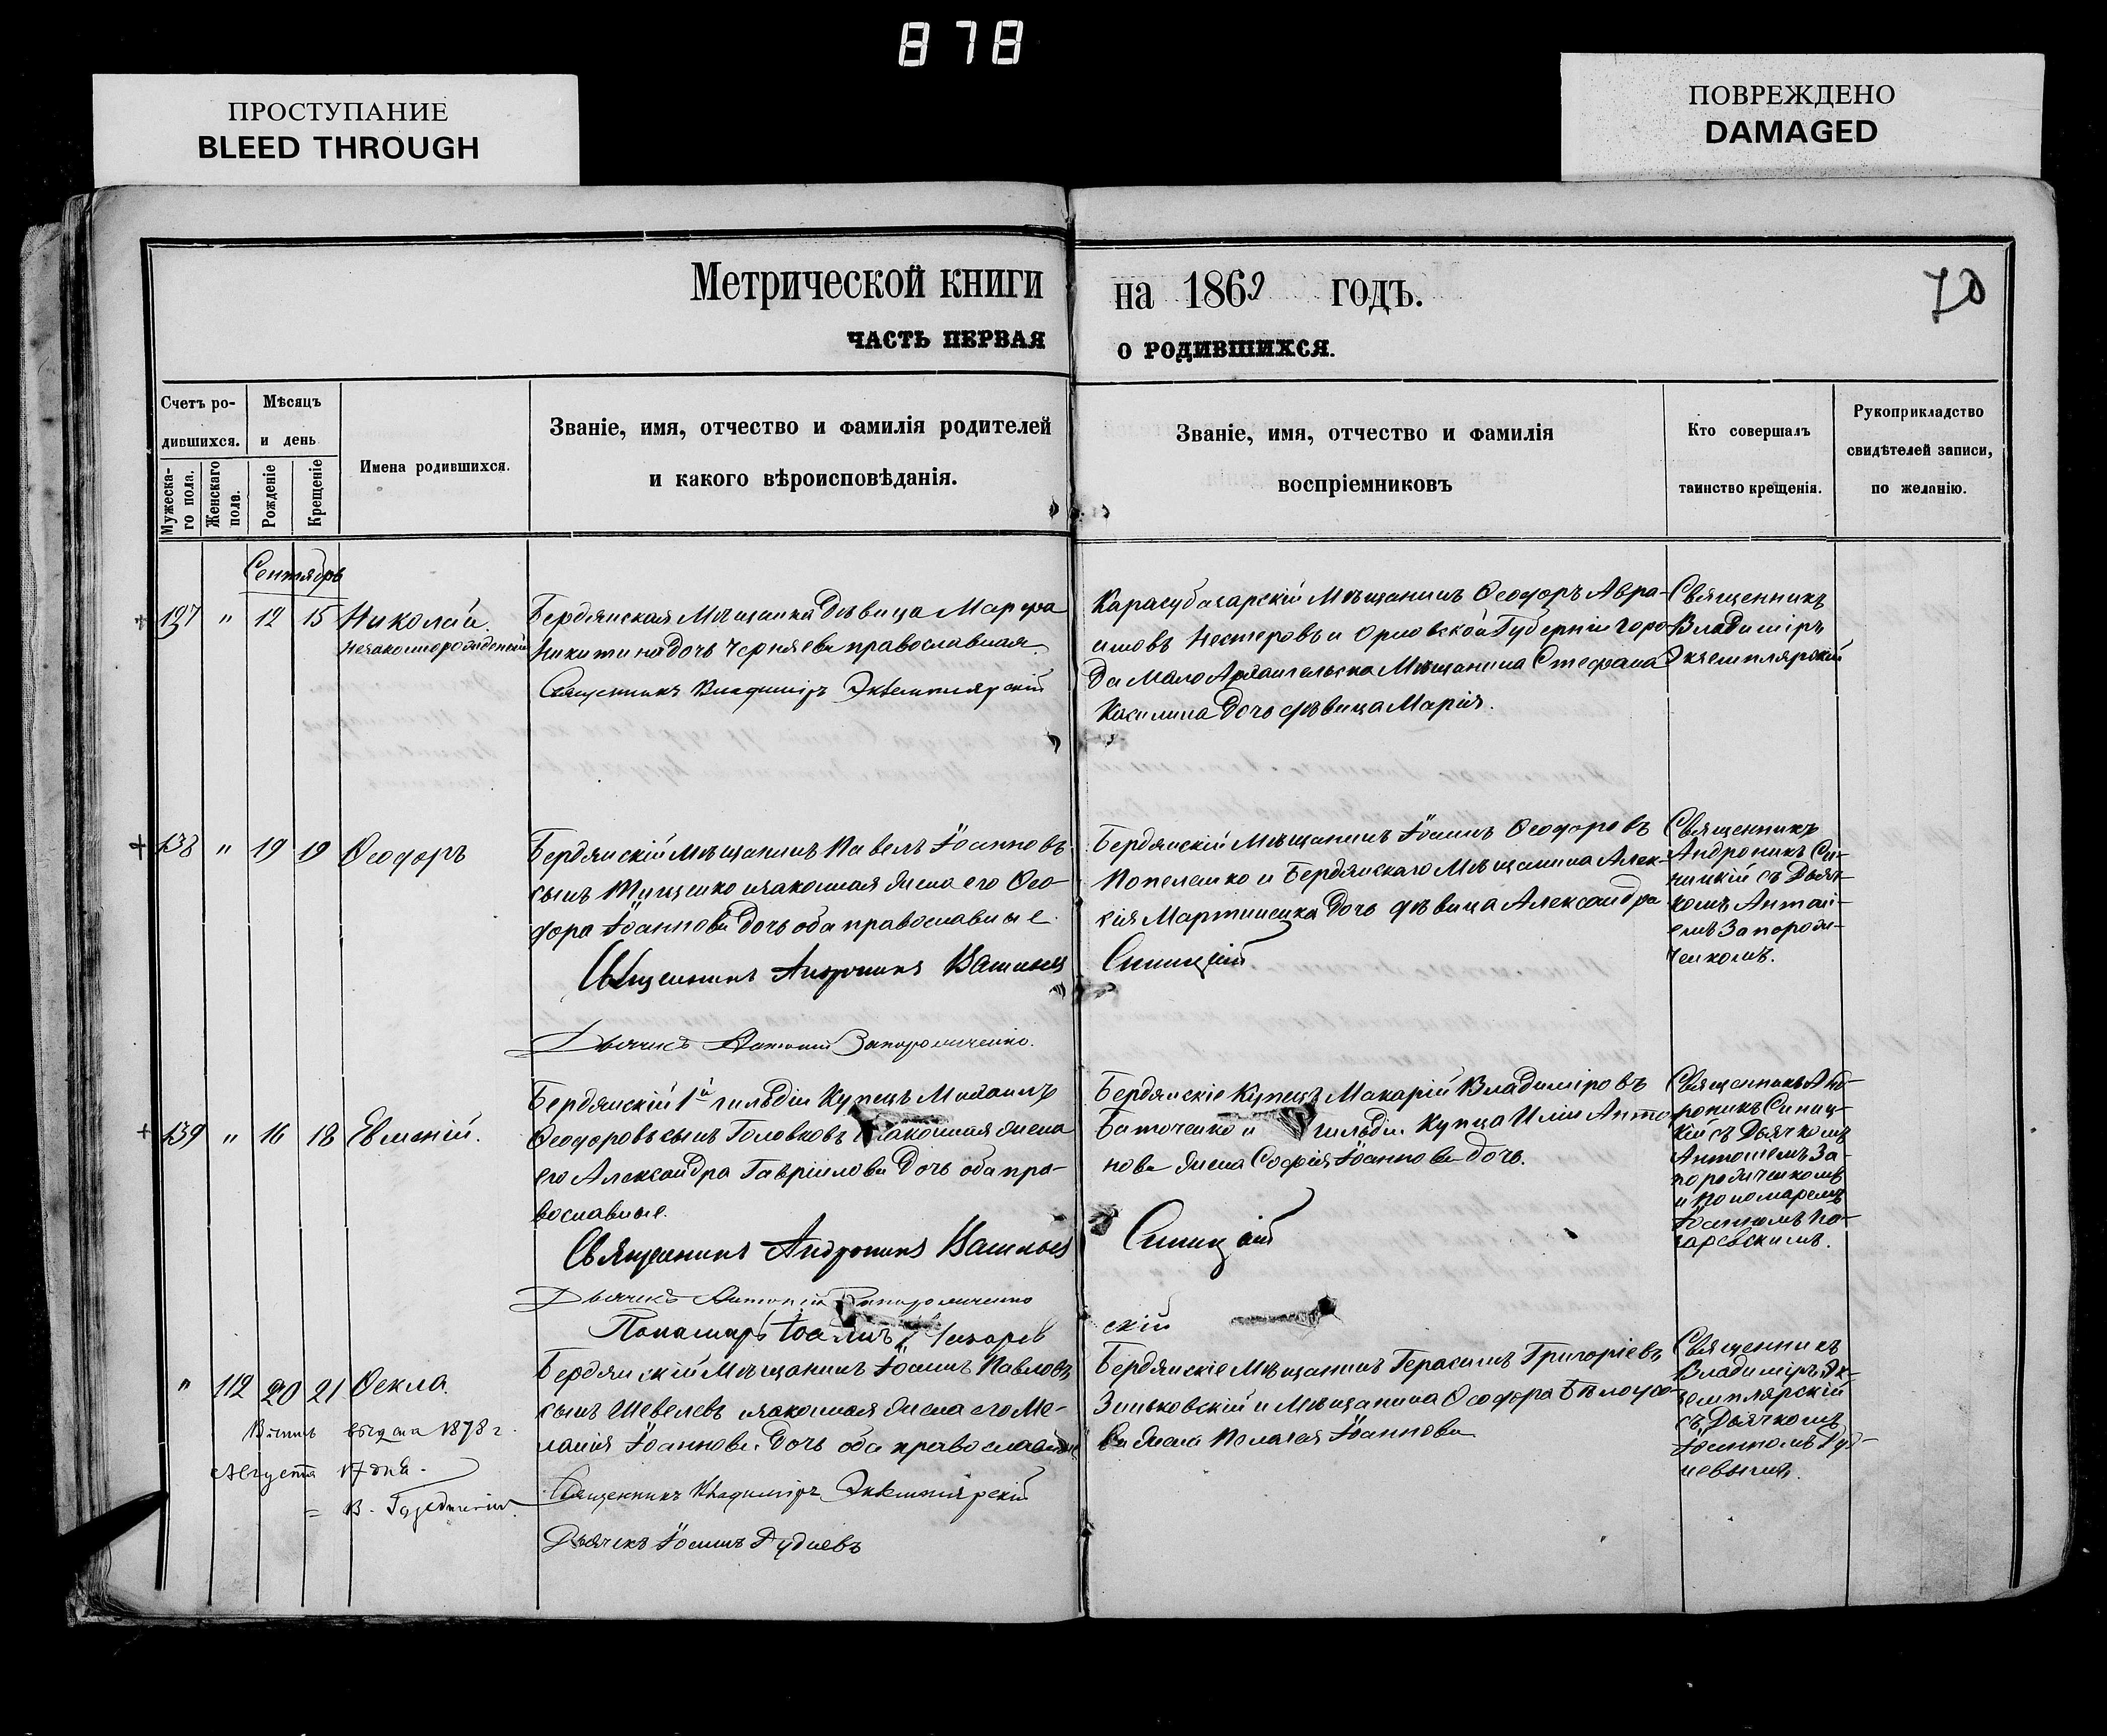 878
ПРОСТУПАНИЕ
BLEED THROUGH
ПОВРЕЖДЕНО
DAMAGED
Метрической книги на 1869 годъ.
70
ЧАСТЬ ПЕРВАЯ О РОДИВШИХСЯ.
Счетъ ро-
дившихся.
Мужеска-
го пола.
Женскаго
пола.
Мѣсяцъ
и день
Рожденіе
Крещеніе
Имена родившихся.
Званіе, имя, отчество и фамилія родителей
и какого вѣроисповѣданія.
Званіе, имя, отчество и фамилія
воспріемниковъ
Кто совершалъ
таинство крещенія.
Рукоприкладство
свидѣтелей записи,
по желанію.
Сентябрь
137 " 12 15 Николай
незаконнорожденный
Бердянская Мѣщанка Дѣвица Марѳа
Никитина дочь Черняева православная
Священникъ Владиміръ Экземплярскій
Карасубазарскій Мѣщанинъ Ѳеодоръ Авра-
амовъ Нестеровъ и Орловской Губерніи горо-
да Мало Архангельска Мѣщанина Стефана
дочь дѣвица Марія.
Священникъ
Владиміръ
Экземплярскій
138 " 19 19 Ѳеодоръ
Бердянскій Мѣщанинъ Павелъ Іоанновъ
сынъ Тищенко и законная жена его Ѳео-
дора Іоаннова дочь оба православные
Священникъ Андроникъ Васильев Синицкій
Дьячекъ Антоній Запорожченко.
Бердянскій Мѣщанинъ Іоаннъ Ѳеодоровъ
Попелешко и Бердянскаго Мѣщанина Алек-
сія Мартиненка дочь дѣвица Александра
Священникъ
Андроникъ Си-
ницкій съ Дьяч-
комъ Антоні-
емъ Запорож-
ченкомъ.
139 " 16 18 Евменій.
Бердянскій 1й гильдіи Купецъ Михаилъ
Ѳеодоровъ сынъ Головковъ и законная жена
его Александра Гавріилова дочь оба пра-
вославные.
Священникъ Андроникъ Васильев Синицкій
Дьячекъ Антоній Запорожченко
Понамарь Іоаннъ
скій
Бердянскіе Купецъ Макарій Владиміровъ
и гильдіи Купца Иліи Анто-
нова жена Софія Іоаннова дочь.
Священникъ Анд-
роникъ Синиц-
кій съ Дьячкомъ
Антоніемъ За-
порожченкомъ
и Пономаремъ
Іоанномъ
" 112 20 21 Ѳекла.
Бердянскій Мѣщанинъ Іоаннъ Павловъ
сынъ Шевелевъ и законная жена его Ме-
ланія Іоаннова дочь оба православные
Священникъ Владиміръ Экземплярскій
Дьячекъ Іоаннъ Дудневъ
Бердянскіе Мѣщанинъ Герасимъ Григоріевъ
Зиньковскій и Мѣщанина Ѳеодора Бѣлоусо-
ва жена Пелагія Іоаннова
Священникъ
Владиміръ Эк-
земплярскій
съ Дьячкомъ
Іоанномъ Дуд-
невымъ.
выдана 1878 г.
Августа 17 дня.